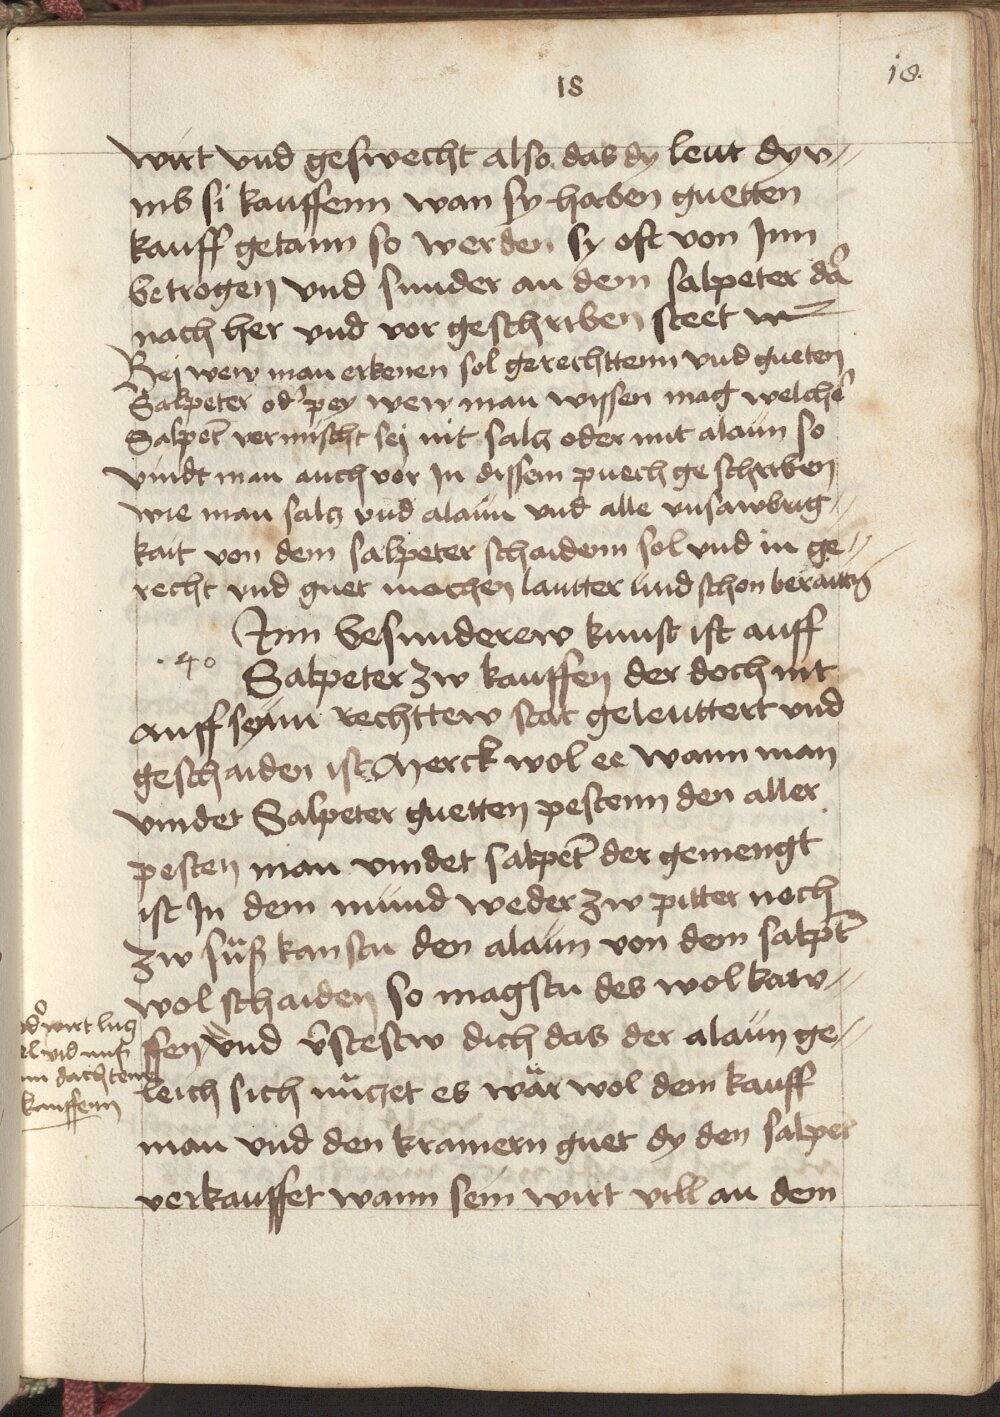 18
18.
wirt vnd geswecht also das dy leut dyv//
mb si kauffenn wan sy haben guetten
kauff getann so werden sy oft von Jnn
betrogen vnd sunder an dem salpeter dar
nach her vnd vor geschriben steet
Bej wew man erkenen sol gerechttenn vnd gueten
Salpeter od' pey wew man wissen mag welche'
Salpet' vermischt sej mit salcz oder mit alaün so
vindt man auch vor Jn dissem puech geschriben
wie man salcz vnd alaün vnd alle vnsawbrig//
kait von dem salpeter schaidenn sol vnd in ge//
recht vnd guet machen lautter vnd schon
Ainn besunderew kunst ist auff
.40 Salpeter zw kauffen der doch nit
auff seinn rechttew stat geleuttert vnd
geschaiden ist Merck wol ee wann man
vindet Salpeter guetten pestenn den aller
pesten man vindet salpet' der gemengt
ist Jn dem mund weder zw pitter noch
zw süß kanstu den alaün von dem salpet'
wol schaiden so magstu des wol kaw//
ffen vnd v'stestw dich das der alaün ge//
leich sich nüczet es wär wol dem kauff
man vnd den kramern guet dy den salpet'
verkauffet wann sein wirt vill an dem
wirt lug
vnd
kauffenn